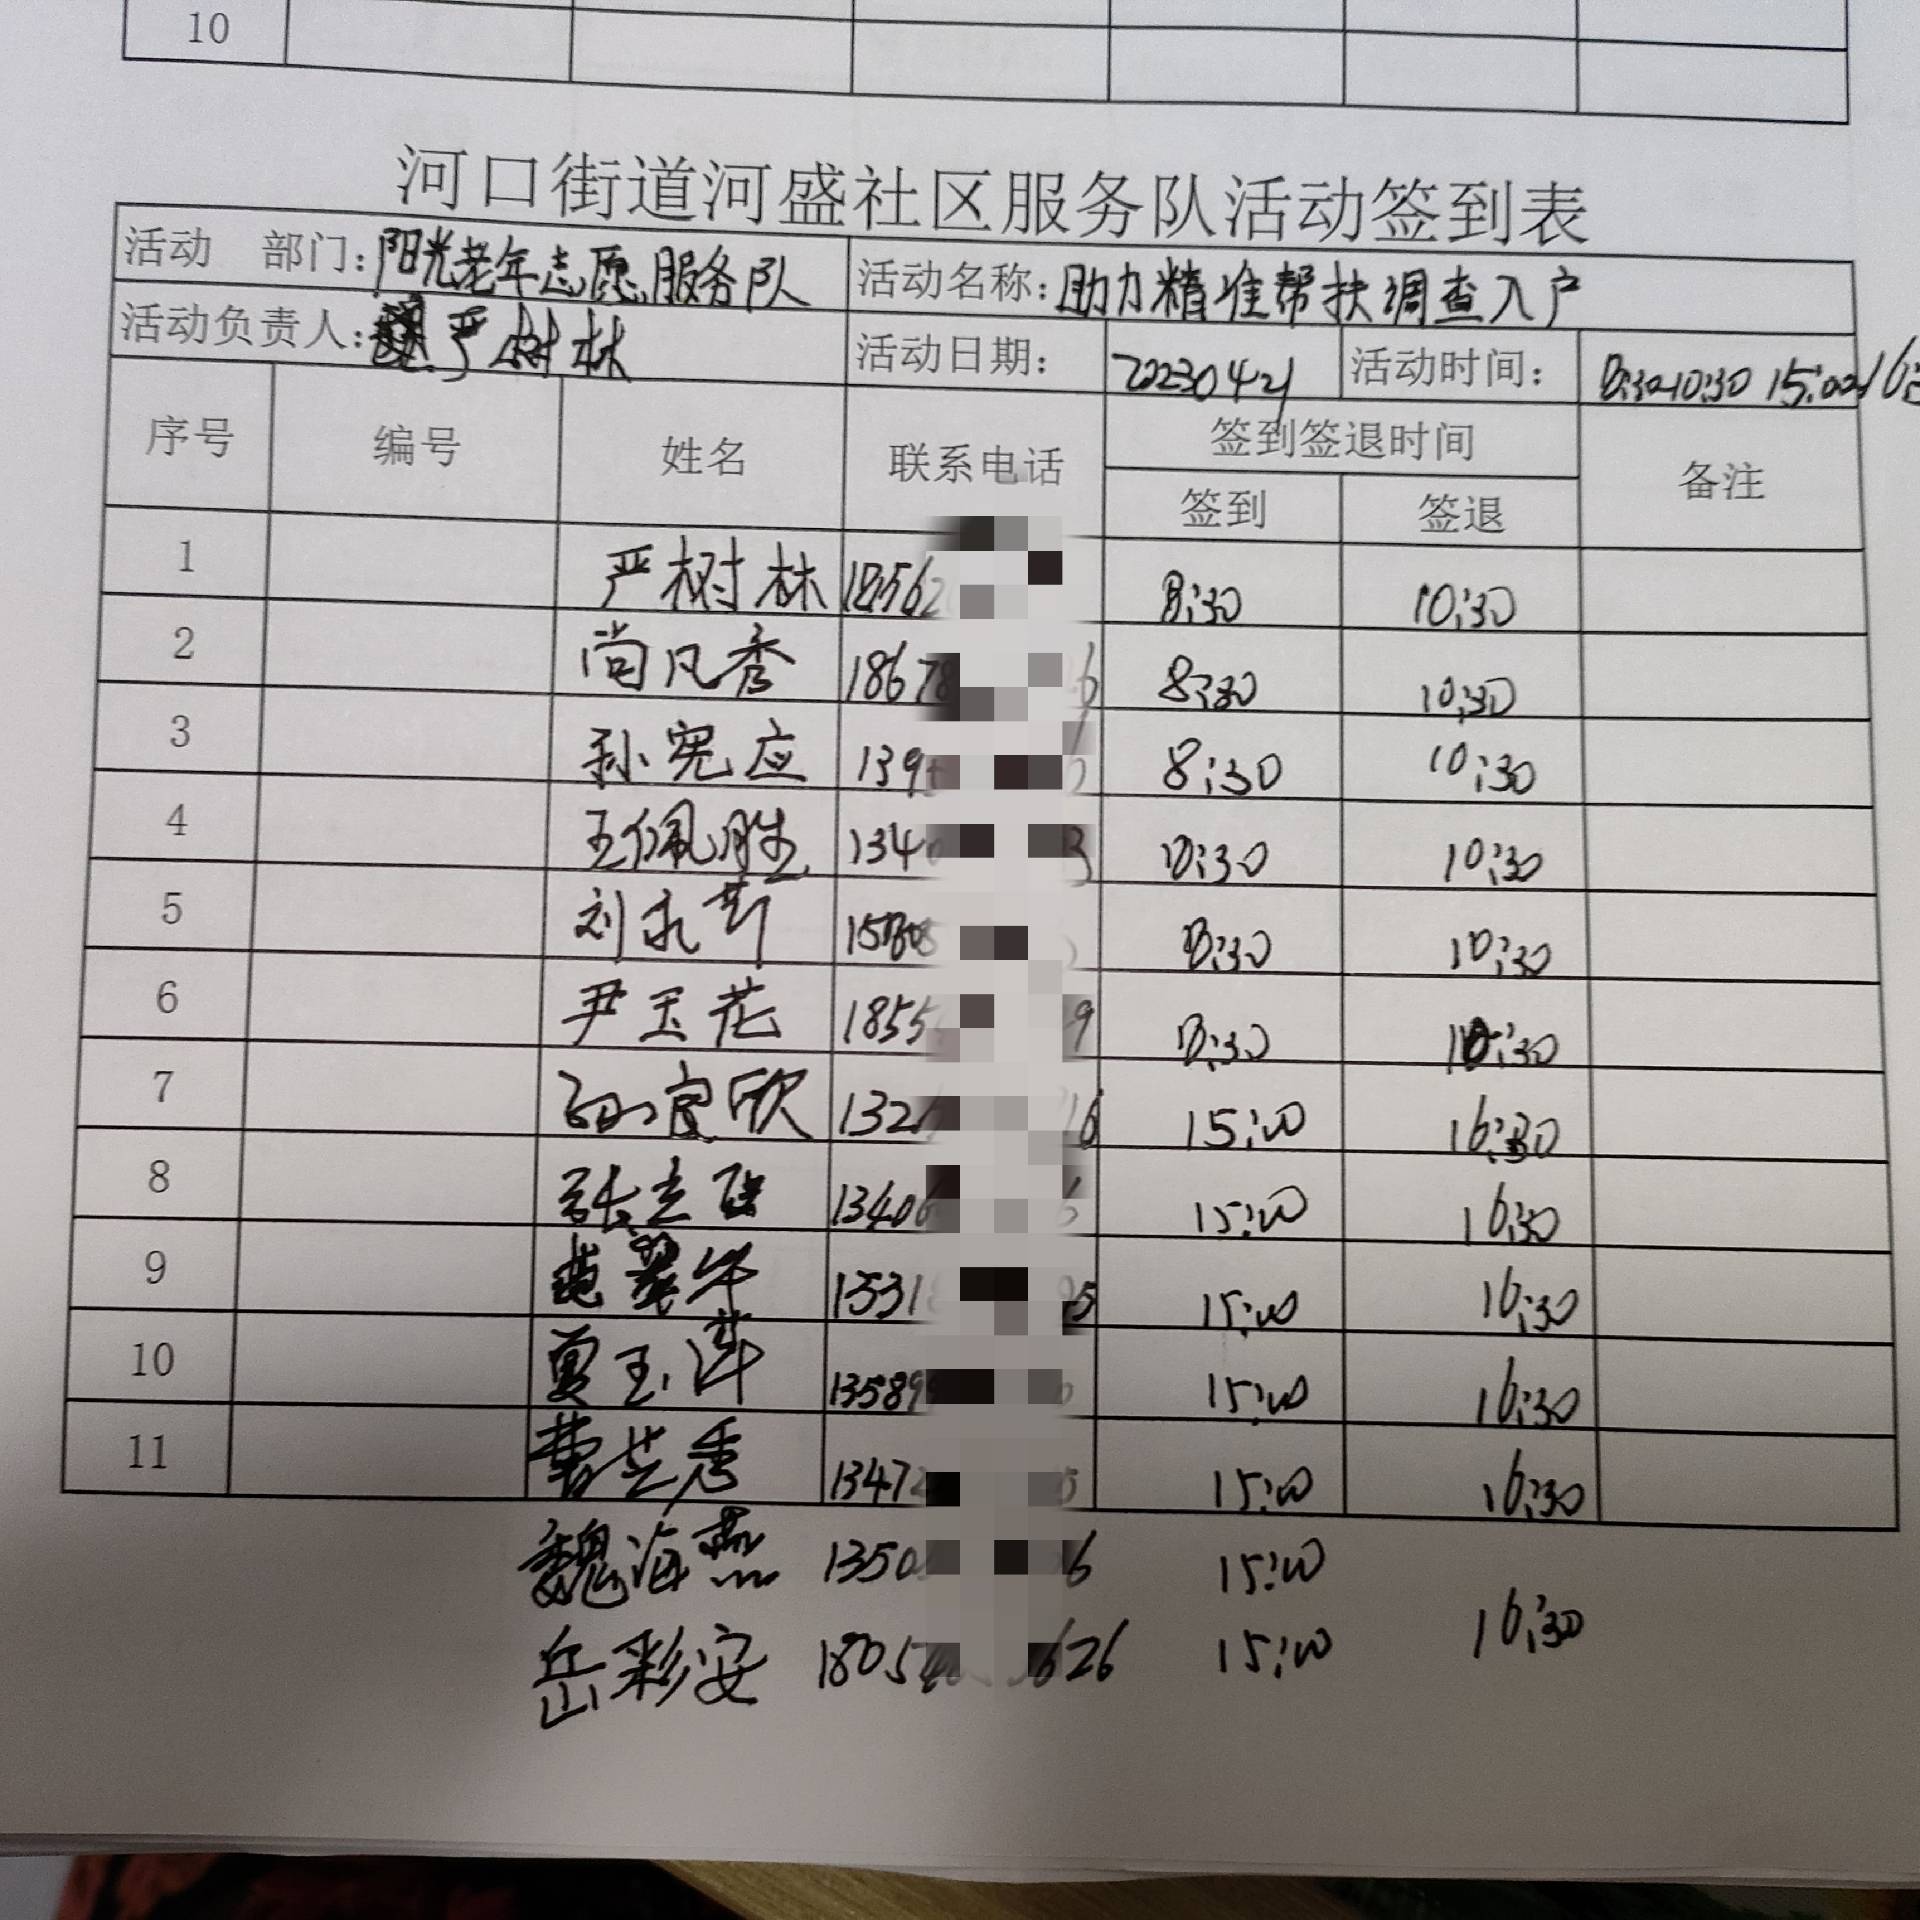 10
河口街道河盛社区服务队活动签到表
活动 部门：阳光老年志愿服务队 活动名称：助力精准帮扶调查入户
活动负责人：严树林 活动日期： 20230421 活动时间： 8:30-10:30 15:00-16:
序号 编号 姓名 联系电话 签到签退时间 备注
签到 签退
1 严树林 18562 8:30 10:30
2 尚凡秀 18678 6 8:30 10:30
3 孙宪应 139 8:30 10:30
4 王佩胜 134 3 8:30 10:30
5 刘永芹 15 8:30 10:30
6 尹玉花 1855 9 8:30 10:30
7 孙良欣 132 16 15:00 16:30
8 张立 1340 6 15:00 16:30
9 1531 95 15:00 16:30
10 贾玉萍 13589 15:00 16:30
11 曹兰秀 1347 5 15:00 16:30
魏海燕 1350 6 15:00
岳彩安 1805 626 15:00 16:30